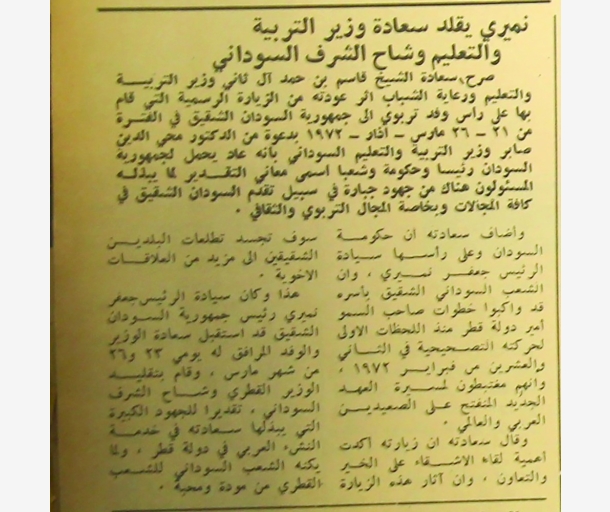 نميري يقلد سعادة وزير التربية
والتعليم وشاح الشرف السوداني
صرح سعادة الشيخ قاسم بن حمد آل ثاني وزير التربيـــة
والتعليم ورعاية الشباب اثر عودته من الزيارة الرسمية التي قام
بها على رأس وفد تربوي الى جمهورية السودان الشقيق في الفتــرة
من ٢١ – ٢٦ مارس – آذار – ١٩٧٢ بدعوة من الدكتور محي الدين
صابر وزير التربية والتعليم السوداني بأنه عاد يحمل لجمهورية
السودان رئيسا وحكومة وشعبا اسمى معاني التقـــدير لما يبذلــه
المسئولون هناك من جهود جبارة في سبيل تقدم السودان الشقيق في
كافة المجالات وبخاصة المجال التربوي والثقافي .
واضاف سعادته ان حكومــة
السودان وعلى رأســـها سيــادة
الرئيس جعفــر نمـــيري ، وان
الشعب السوداني الشقيق بأسره
قد واكبوا خطوات صاحب السمو
امير دولة قطر منذ اللحظات الاولى
لحركته التصـحيحية في الثـــاني
والعشرين من فبرايـــر ١٩٧٢ ،
وانهم مغتبطون لمســيرة العهــد
الجديد المنفتح علــى الصعيديــن
العربي والعالمي .
وقال سعادته ان زيارته أكدت
اهمية لقاء الاشـــقاء على الخــير
والتعاون ، وان آثار هذه الزيارة
سوف تجسد تطلعات البلديــن
الشقيقين الى مزيد من العلاقـــات
الاخوية .
هذا وكان سيادة الرئيس جعفر
نميري رئيس جمهورية الســـودان
الشقيق قد استقبل سعادة الوزير
والوفد المرافق له يومي ٢٣ و٢٦
من شهر مارس ، وقام بتقليــد
الوزير القطري وشـــاح الشرف
السوداني ، تقديرا للجهود الكبيرة
التي يبذلها ســـعادته في خدمـــة
النشء العربي في دولة قطر ، ولما
يكنه الشعب السوداني للشـــعب
القطري من مودة ومحبة .